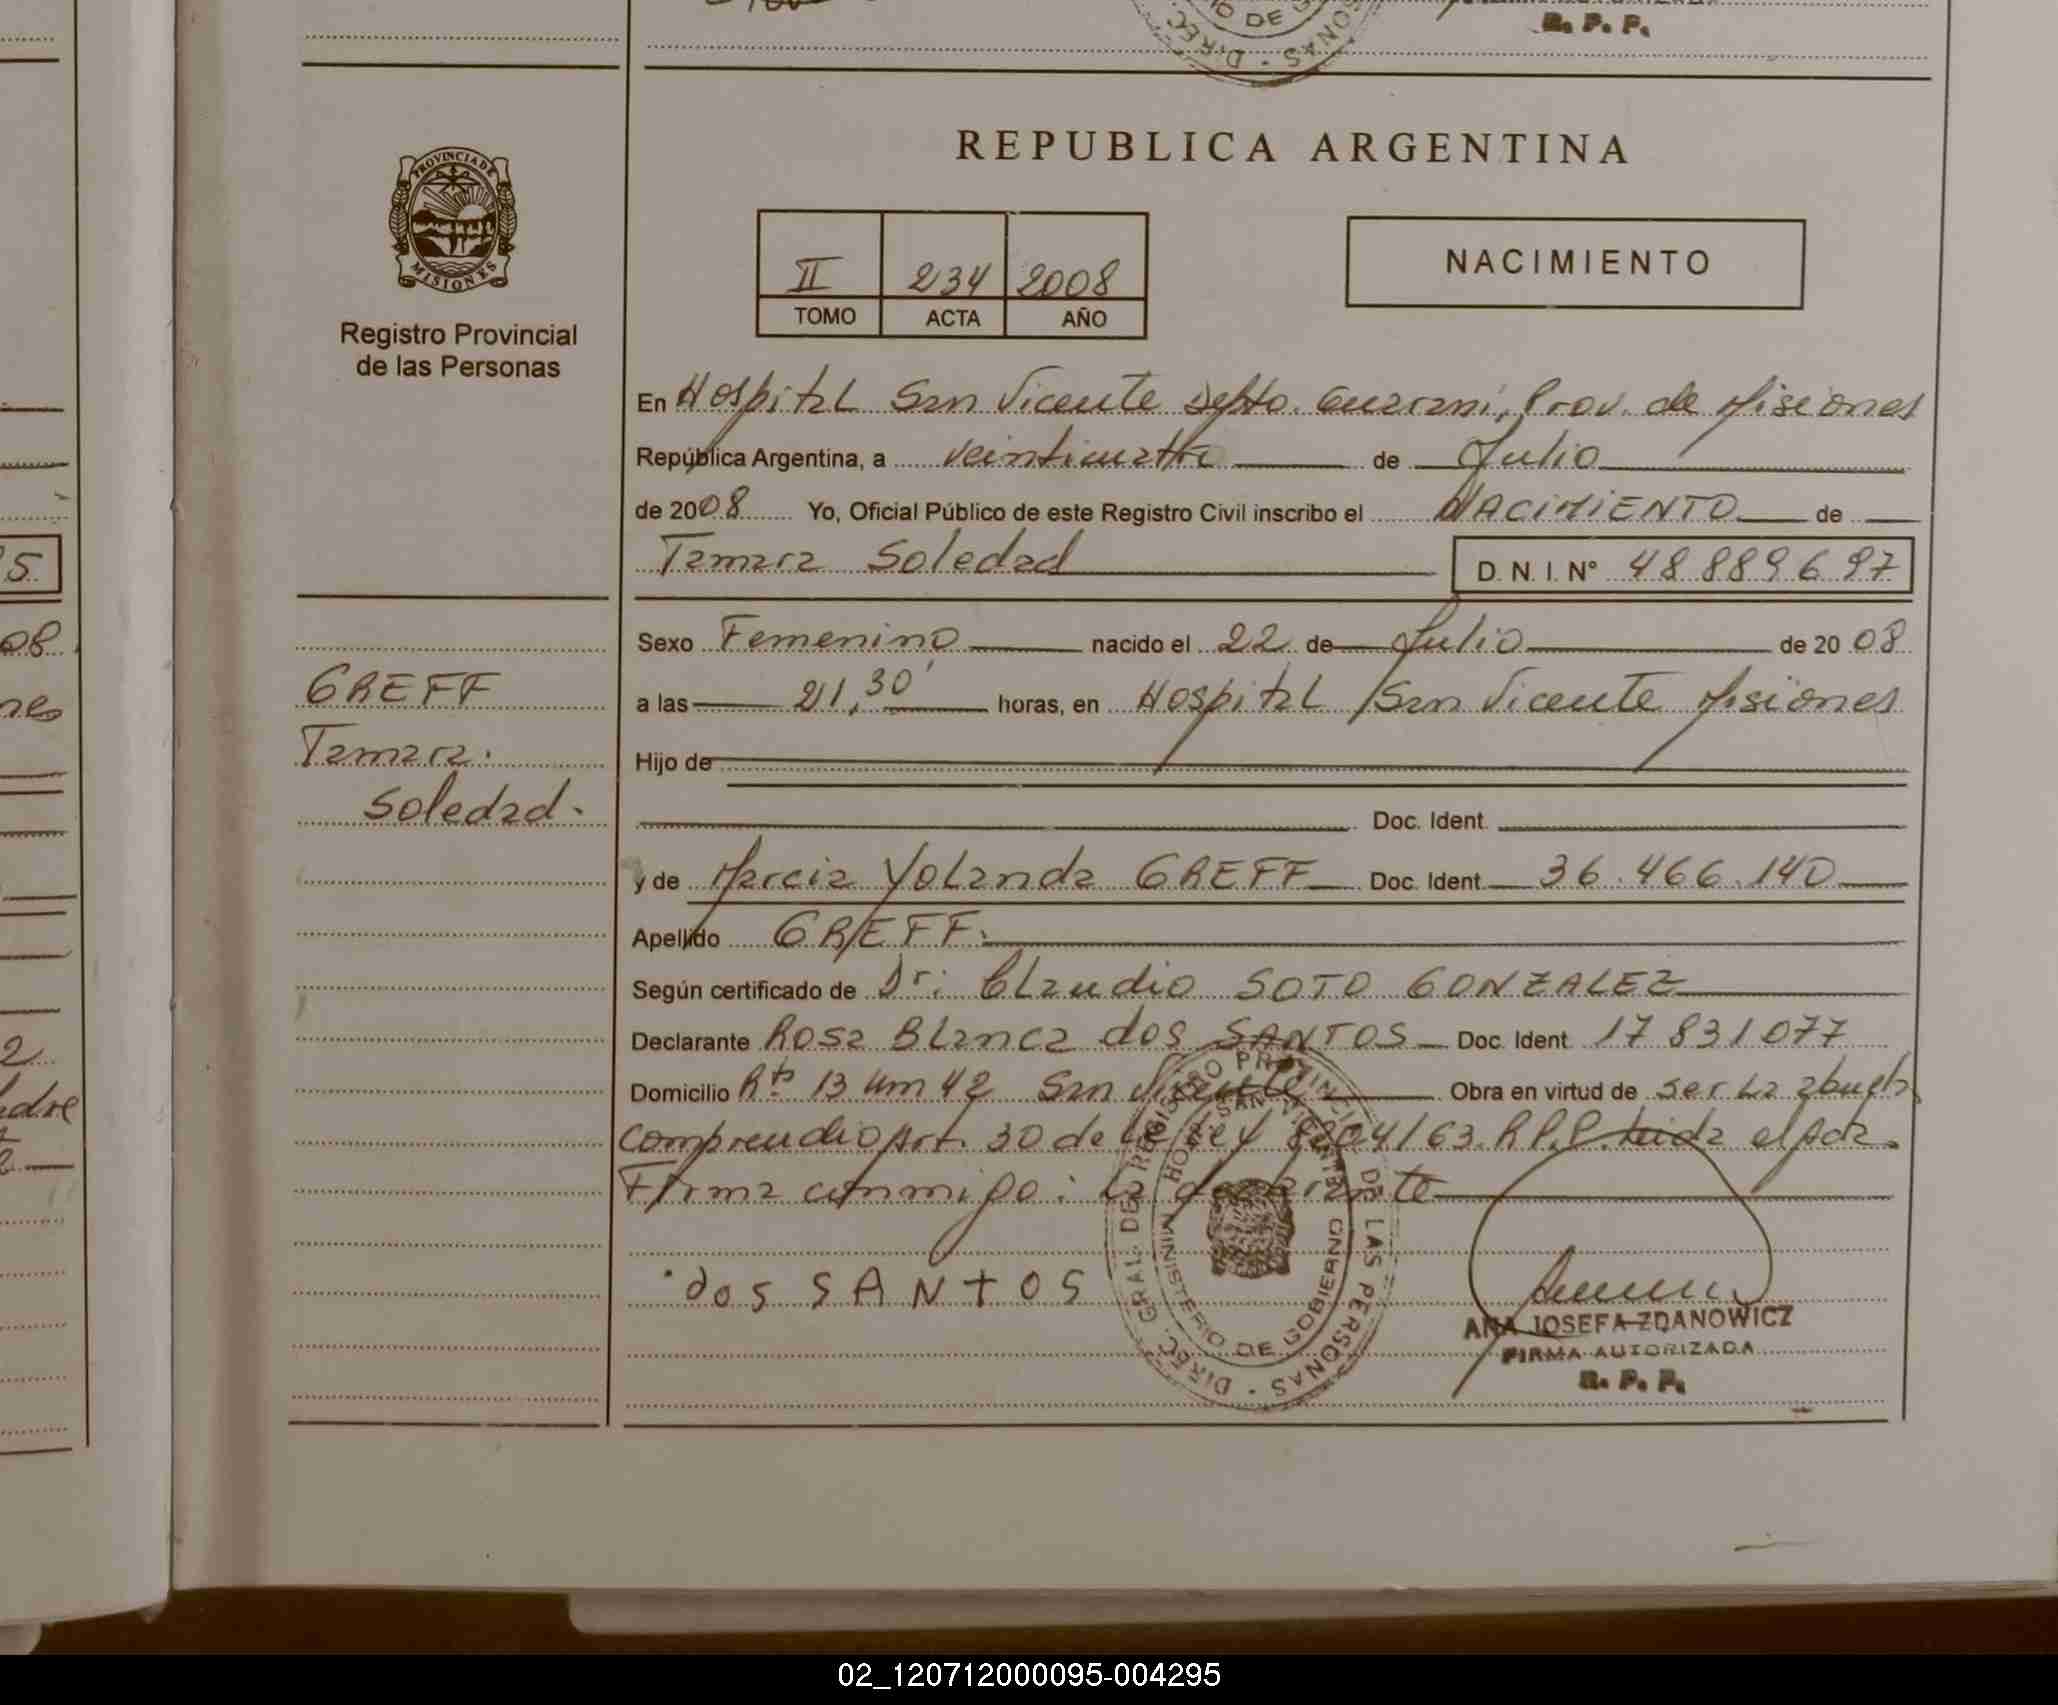 R. P. P.
REPUBLICA ARGENTINA
PROVINCIA DE MISIONES
Registro Provincial
de las Personas
II 234 2008
TOMO ACTA AÑO
NACIMIENTO
En Hospital San Vicente Depto. Guarani, Prov. de Misiones
República Argentina, a veinticuatro de Julio
de 2008 Yo, Oficial Público de este Registro Civil inscribo el NACIMIENTO de
Tamara Soledad D. N. I. N° 48889697
Sexo Femenino nacido el 22 de Julio de 2008
a las 21,30' horas, en Hospital San Vicente Misiones
Hijo de
Doc. Ident.
y de Marcia Yolanda GREFF Doc. Ident. 36.466.140
Apellido GREFF.
Según certificado de Dr: Claudio SOTO GONZALEZ
Declarante Rosa Blanca dos SANTOS Doc. Ident. 17831077
Domicilio Rta 13 Km 42 San Vicente Obra en virtud de ser La abuela
comprendio Art. 30 de la Ley 8204/63. R.P.P. Leida el Acta.
Firma conmigo: La declarante
dos SANTOS
GREFF
Tamara.
Soledad.
DIREC. GRAL. DEL REGISTRO PROVINCIAL DE LAS PERSONAS
MINISTERIO DE GOBIERNO
SAN VICENTE
ANA JOSEFA ZDANOWICZ
FIRMA AUTORIZADA
R. P. P.
02_120712000095-004295